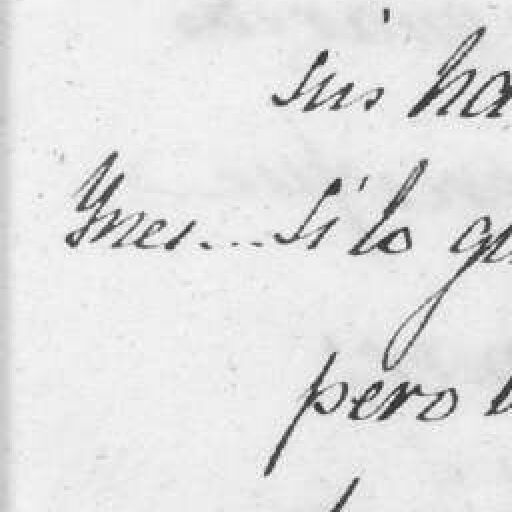 sin ha
Ynes.... Si lo qu
pero